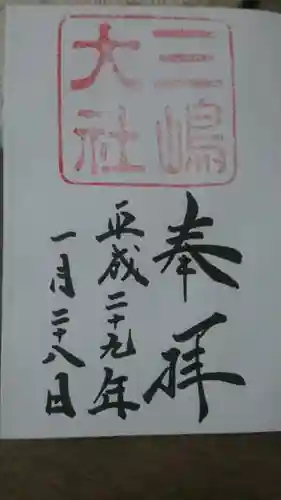 三嶋
大社
奉拝
平成二十九年
一月二十八日